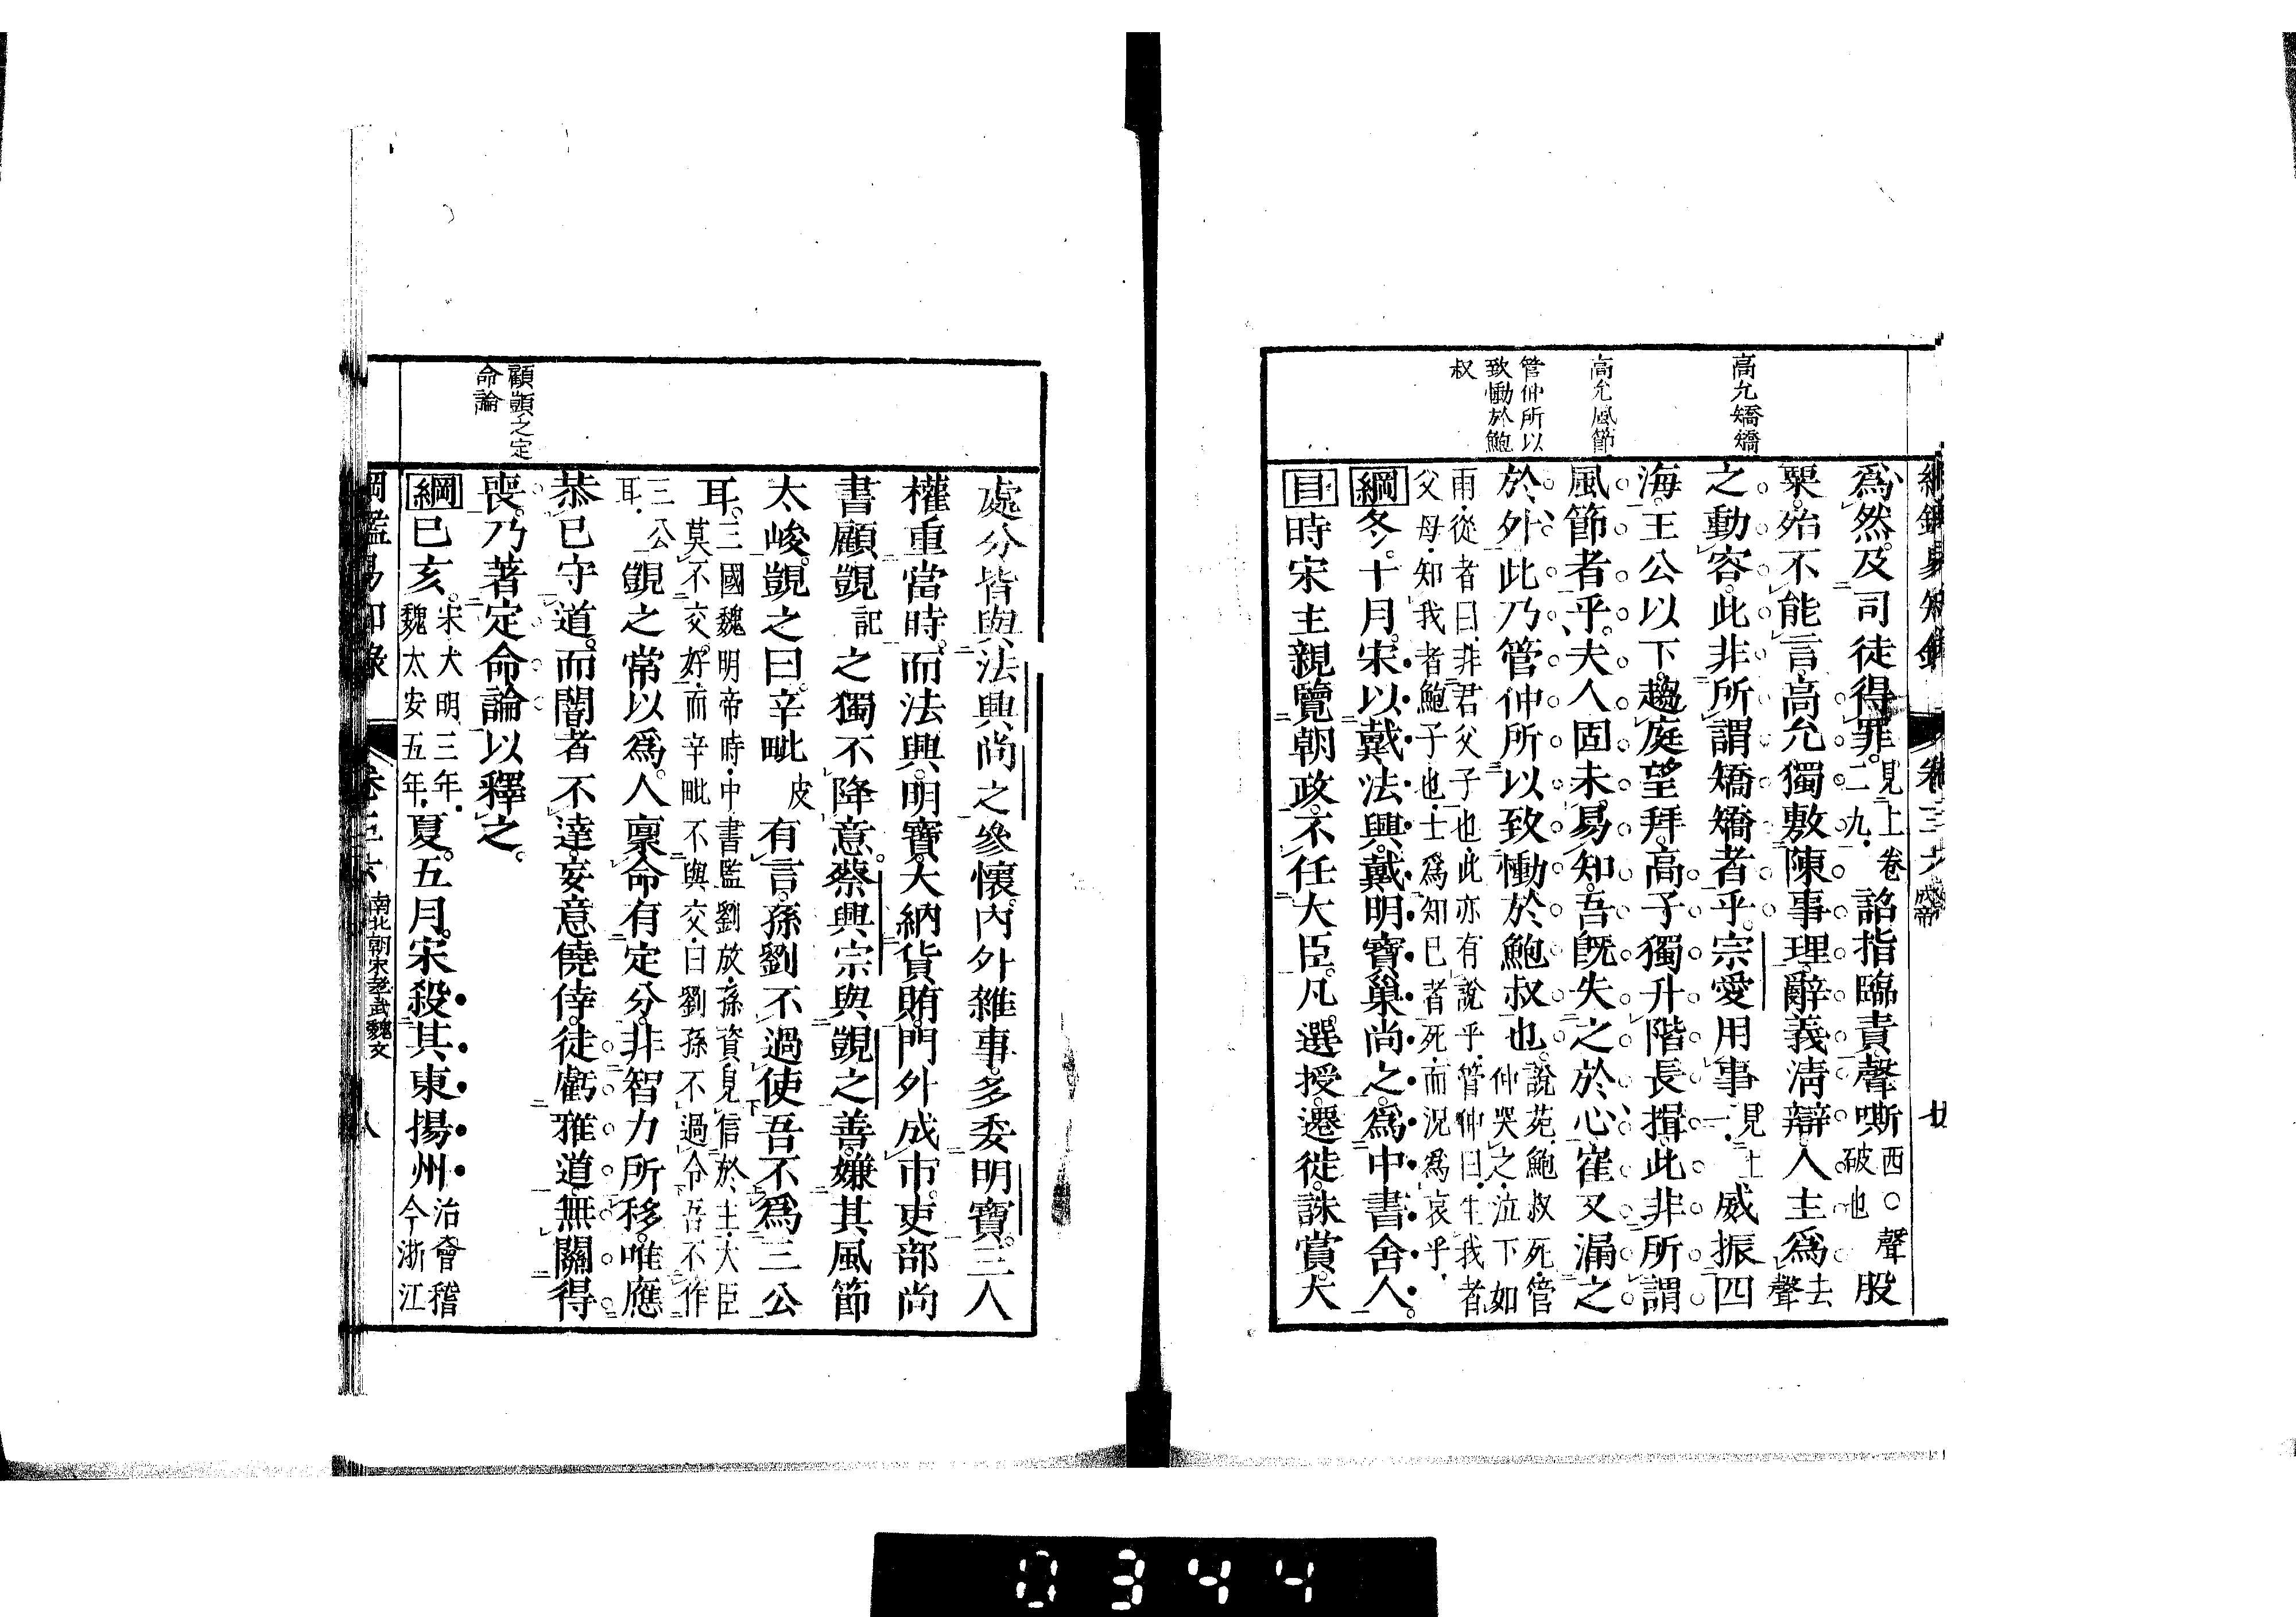 高允矯矯
高允風節
管仲所以
致慟於鮑
叔
爲然及司徒得罪見上卷二九詔指臨責聲嘶西○聲破也股
栗殆不能言高允獨敷陳事理辭義淸辯人主爲去聲
之動容此非所謂矯矯者乎宗愛用事見上一威振四
海王公以下趨庭望拜高子獨升階長揖此非所謂
風節者乎夫人固未易知吾旣失之於心崔又漏之
於外此乃管仲所以致慟於鮑叔也說苑鮑叔死管仲哭之泣下如
雨從者曰非君父子也此亦有說乎管仲曰生我者
父母知我者鮑子也士爲知己者死而況爲哀乎
綱冬十月宋以戴法興戴明寶巢尚之爲中書舍人
目時宋主親覽朝政不任大臣凡選授遷徙誅賞大
顧顗之定
命論
處分皆與法興尚之參懷內外雜事多委明寶三人
權重當時而法興明寶大納貨賄門外成市吏部尚
書顧覬記之獨不降意蔡興宗與覬之善嫌其風節
太峻覬之曰辛毗皮有言孫劉不過使吾不爲三公
耳三國魏明帝時中書監劉放孫資見信於主大臣
莫不交好而辛毗不與交曰劉孫不過令吾不作
三公
耳覬之常以爲人稟命有定分非智力所移唯應
恭已守道而闇者不達妄意僥倖徒虧雅道無關得
喪乃著定命論以釋之
綱已亥宋大明三年魏太安五年夏五月宋殺其東揚州治會稽今浙江
綱鑑易知錄 卷三六 南北朝宋孝武魏文 八